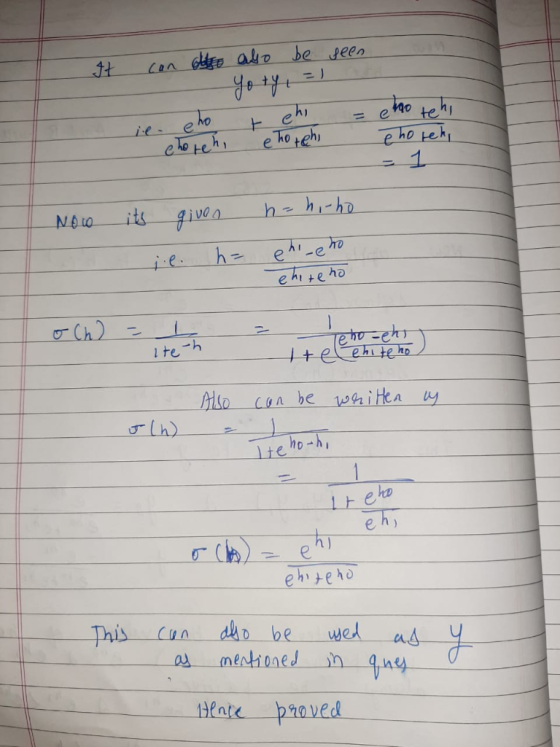 It can also be seen
y0 + y1 = 1
i.e. e^h0 / (e^h0 + e^h1) + e^h1 / (e^h0 + e^h1) = (e^h0 + e^h1) / (e^h0 + e^h1)
= 1
Now its given h = h1 - h0
i.e. h = (e^h1 - e^h0) / (e^h1 + e^h0)
σ(h) = 1 / (1 + e^-h) = 1 / (1 + e^((e^h0 - e^h1) / (e^h1 + e^h0)))
Also can be written as
σ(h) = 1 / (1 + e^(h0 - h1))
= 1 / (1 + e^h0 / e^h1)
σ(h) = e^h1 / (e^h1 + e^h0)
This can also be used as y
as mentioned in ques
Hence proved